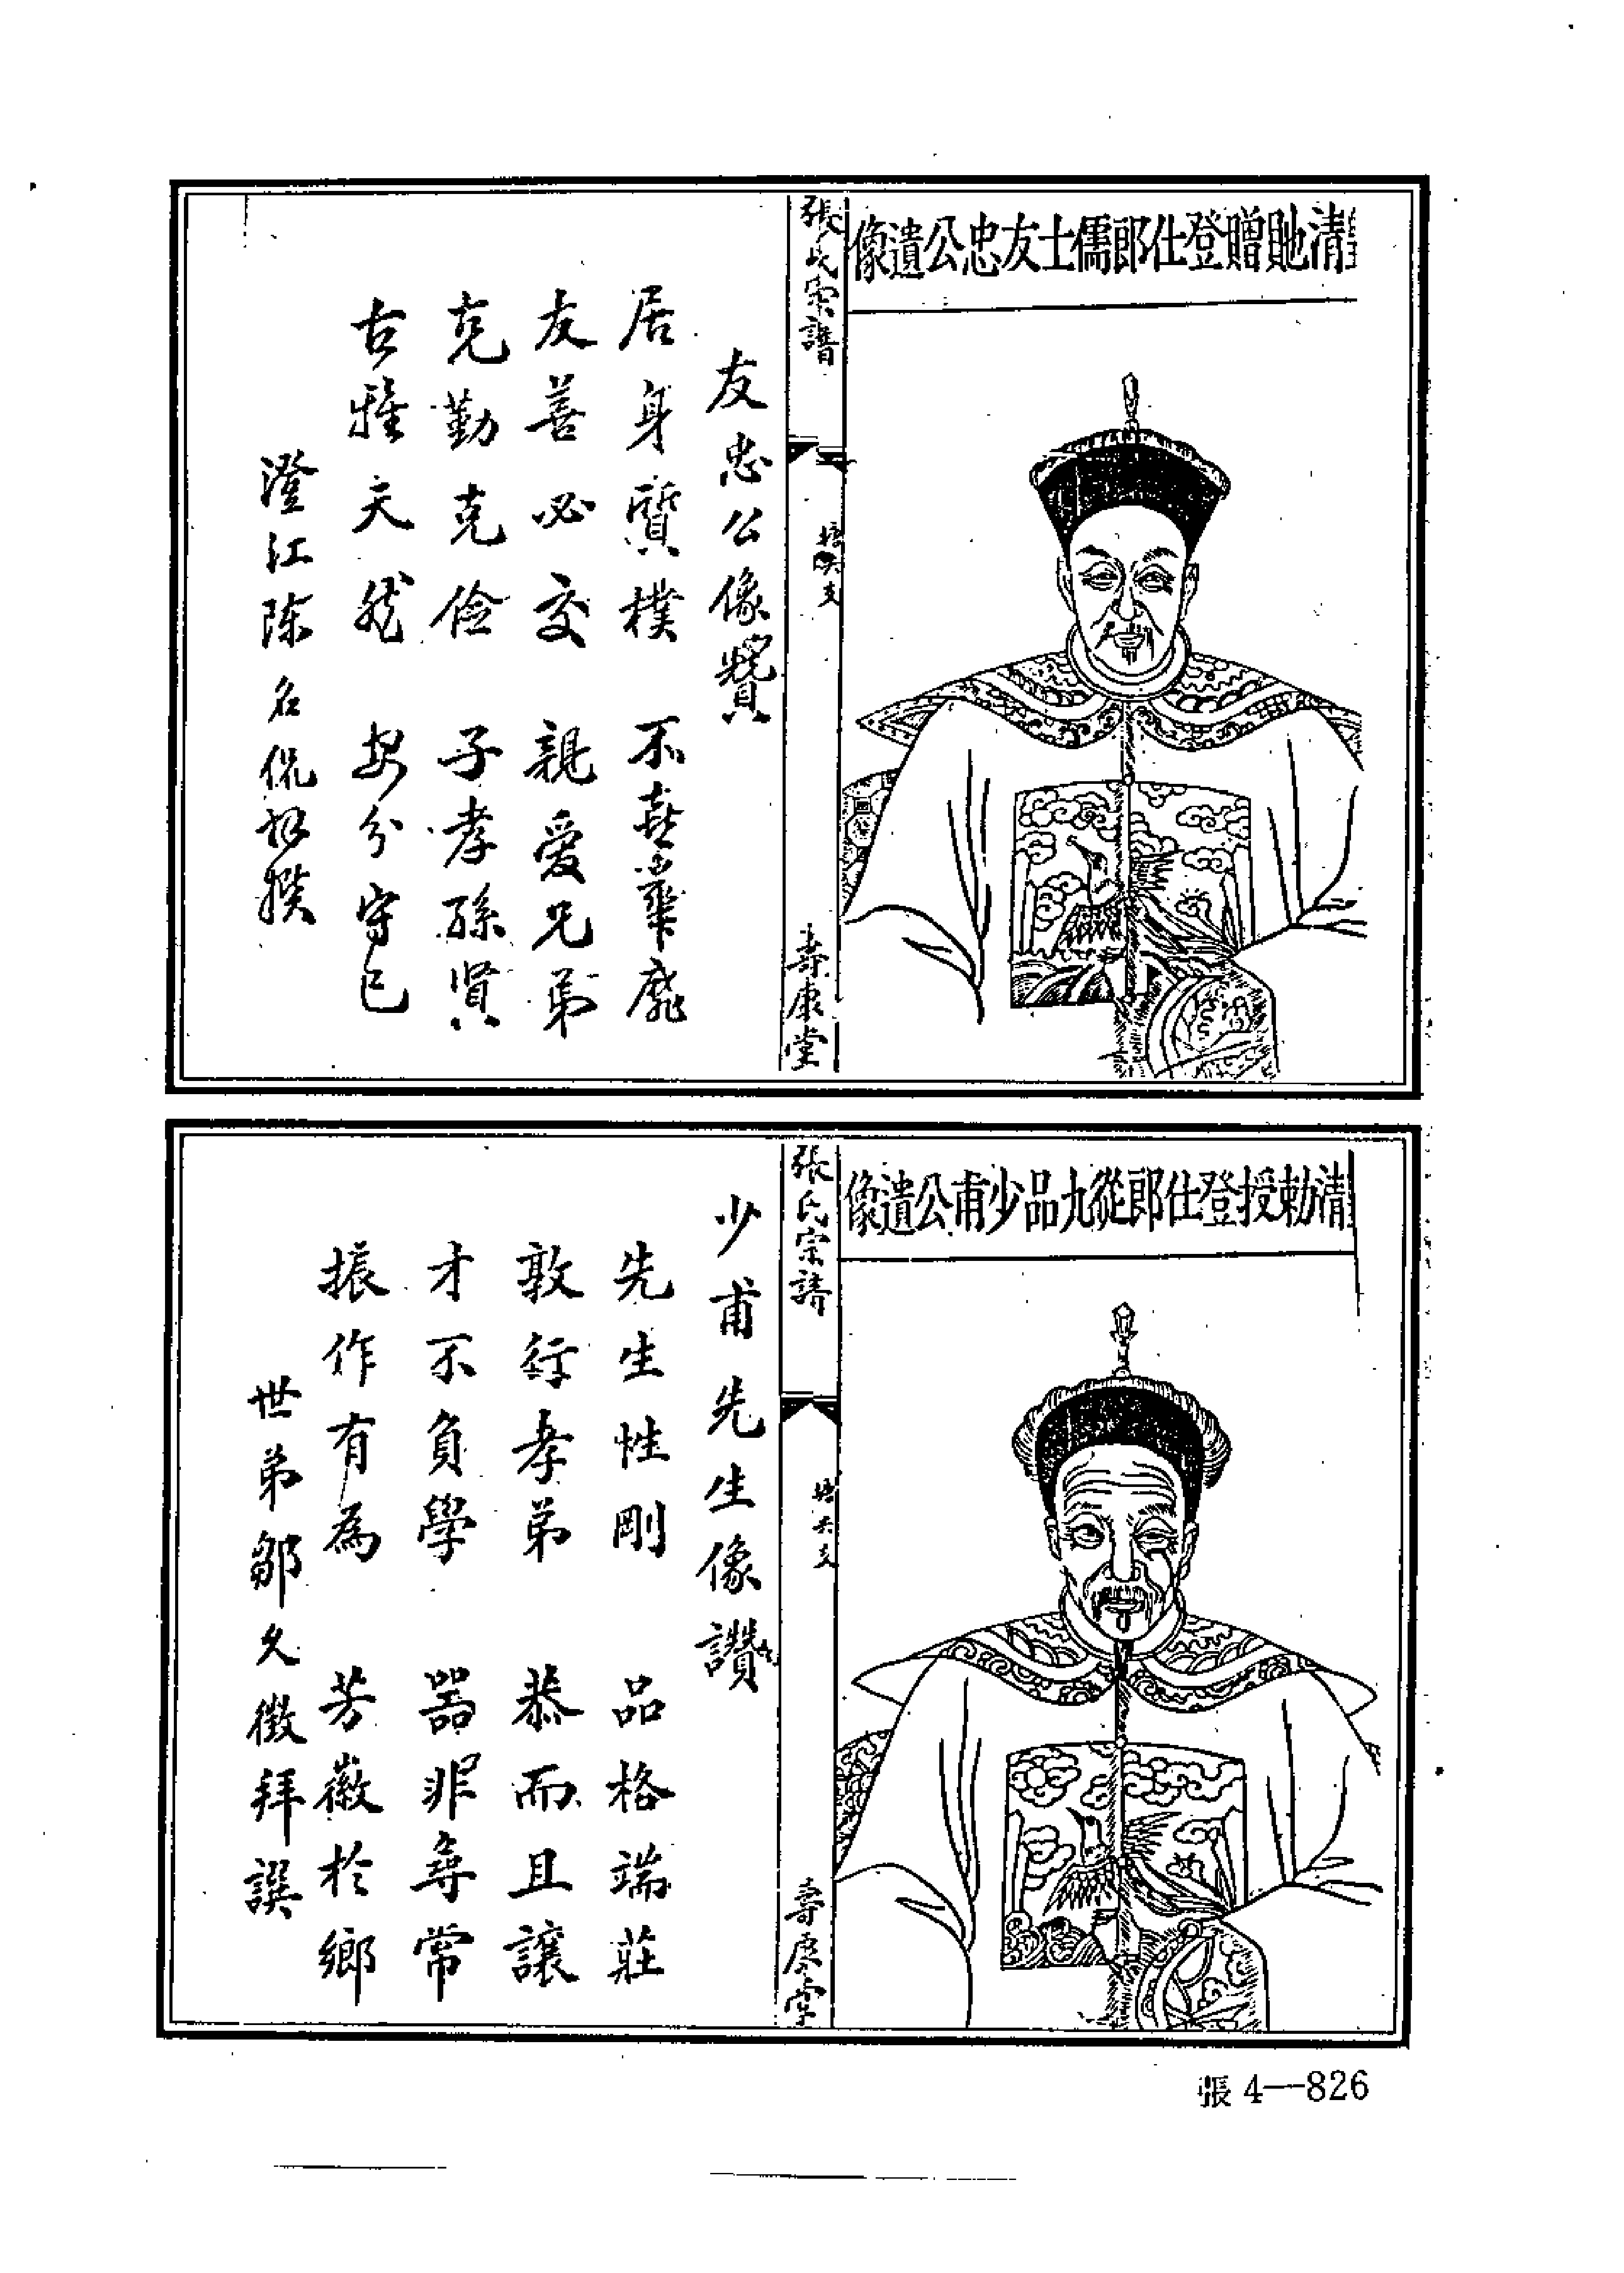 清貤贈登仕郎儒士友忠公遺像
張氏宗譜
壽康堂
友忠公像贊
居身質樸 不喜華靡
友善必交 親愛兄弟
克勤克儉 子孝孫賢
古雅天然 安分守己
澄江陈名侃拜撰
清勅授登仕郎從九品少甫公遺像
張氏宗譜
壽康堂
少甫先生像讚
先生性剛 品格端莊
敦行孝弟 恭而且讓
才不負學 器非尋常
振作有為 芳徽於鄉
世弟鄒久徵拜譔
張4—826